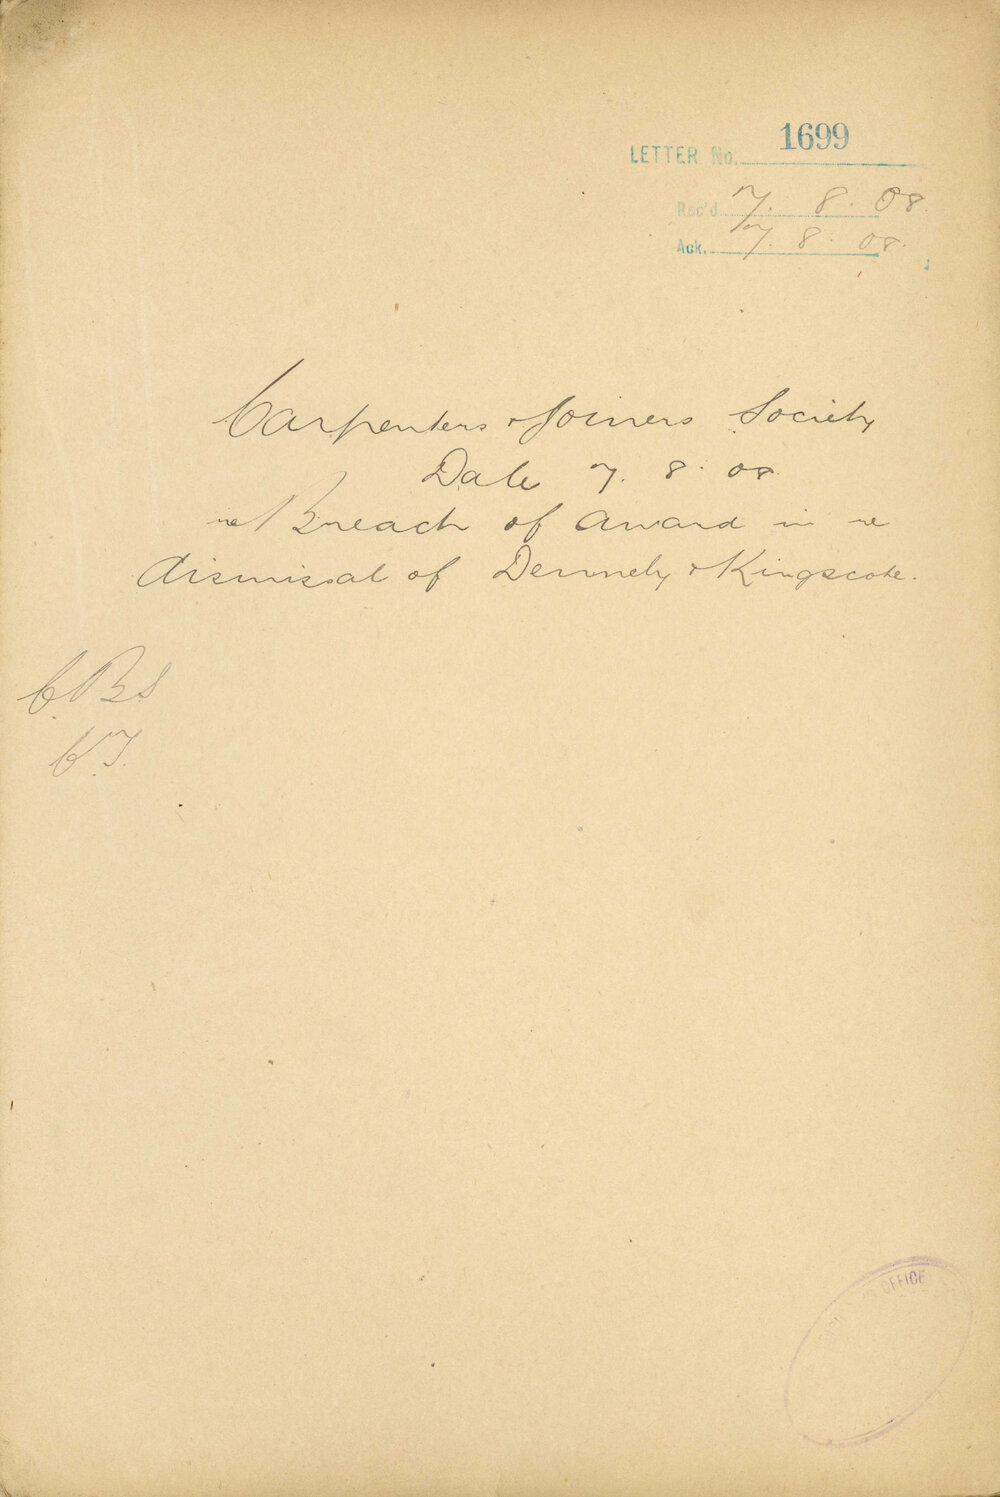 LETTER No. 1699
Rec'd 7. 8. 08.
Ack. 7. 8. 08.
Carpenters & Joiners Society
Date 7. 8. 08
re Breach of award in re
dismissal of Dennely & Kingscote.
C.B.S
C.T.
OFFICE